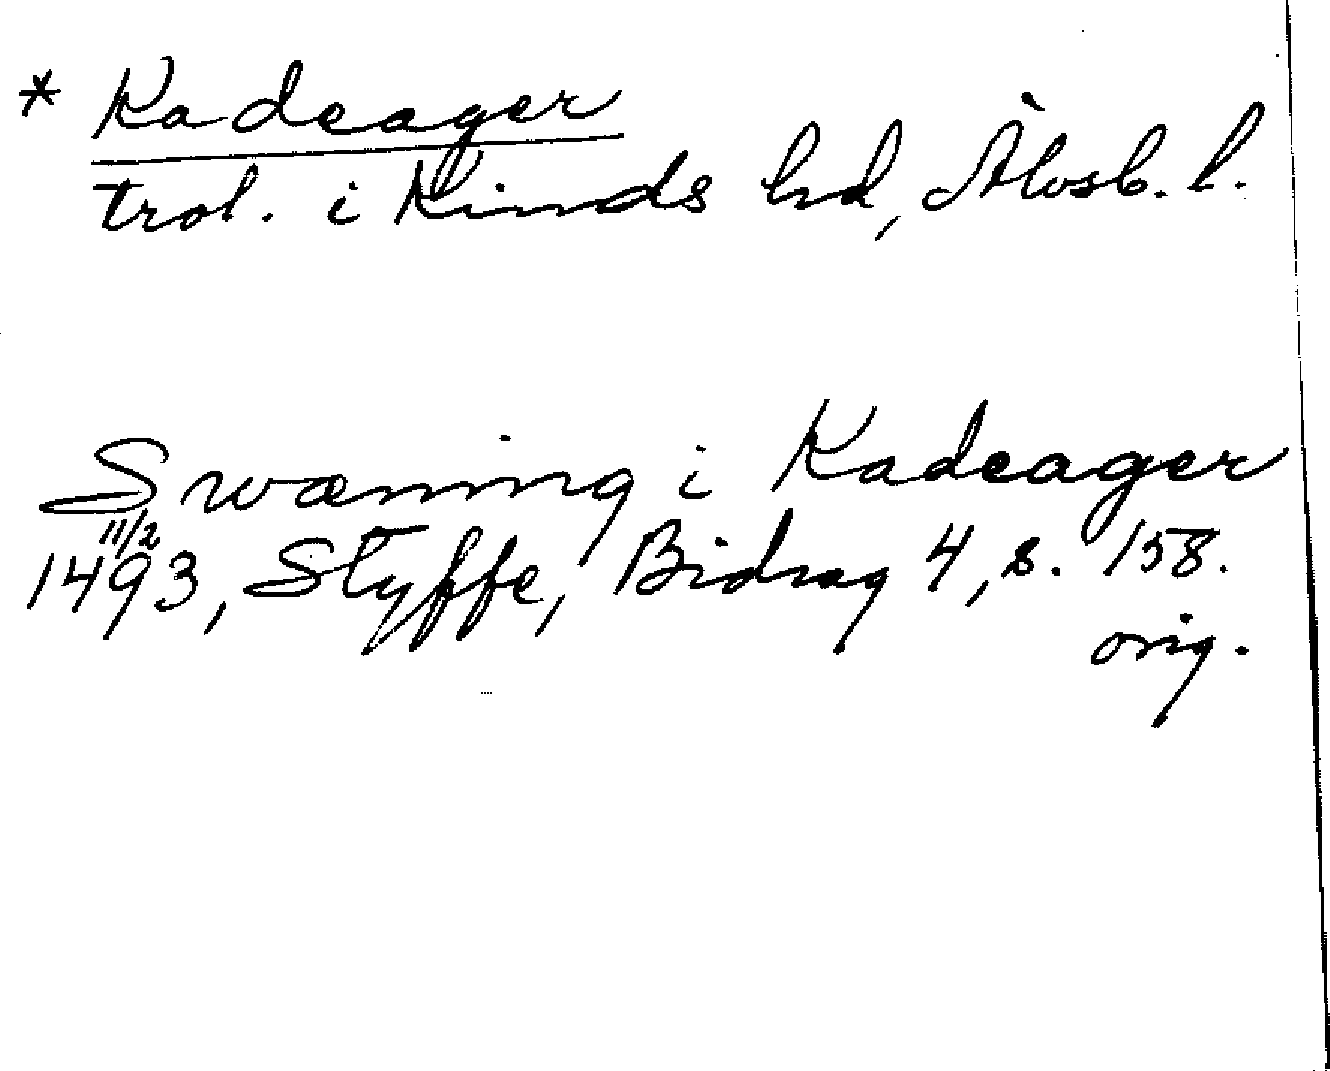 * Kadeager
trol. i Kinds hd, Älvsb. l.
Swæning i Kadeager
11/2
1493, Styffe, Bidrag 4, s. 158.
orig.